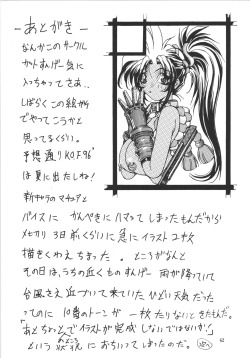 －あとがき－
なんかこのサークル
カットすんげー気に
入っちゃってさあ、
しばらくこの絵から
でやってこうかと
思ってるくらい。
予想通りK.O.F.'96
は夏に出たしね!
新キャラのマチュアと
バイスに かんぺきに ハマって しまったもんだから
メセカリ 3日前くらいに急に イラスト 2枚
描きくわえちまった。 ところがなんと
その日は、うちの近くもの すんげー 雨が降っていて
台風さえ近づいて来ていた ひどい天気だった
ってのに 10番のトーンが 一枚 たりないときたもんだ。
「あとちょっとでイラストが完成 しないではないか!」
という 状況に おちいってしまったのだ。